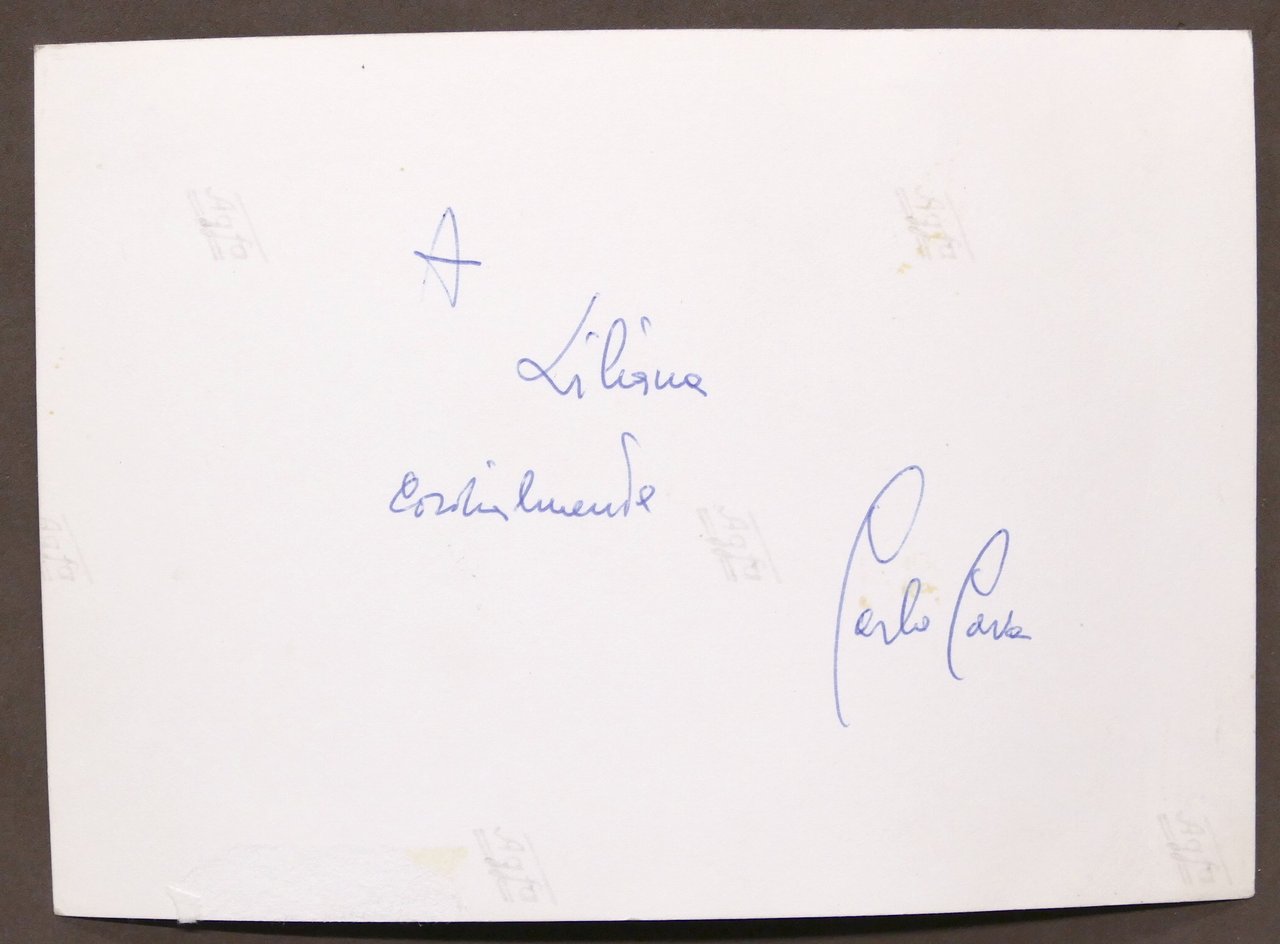 A
Liliana
cordialmente
Carlo Cava